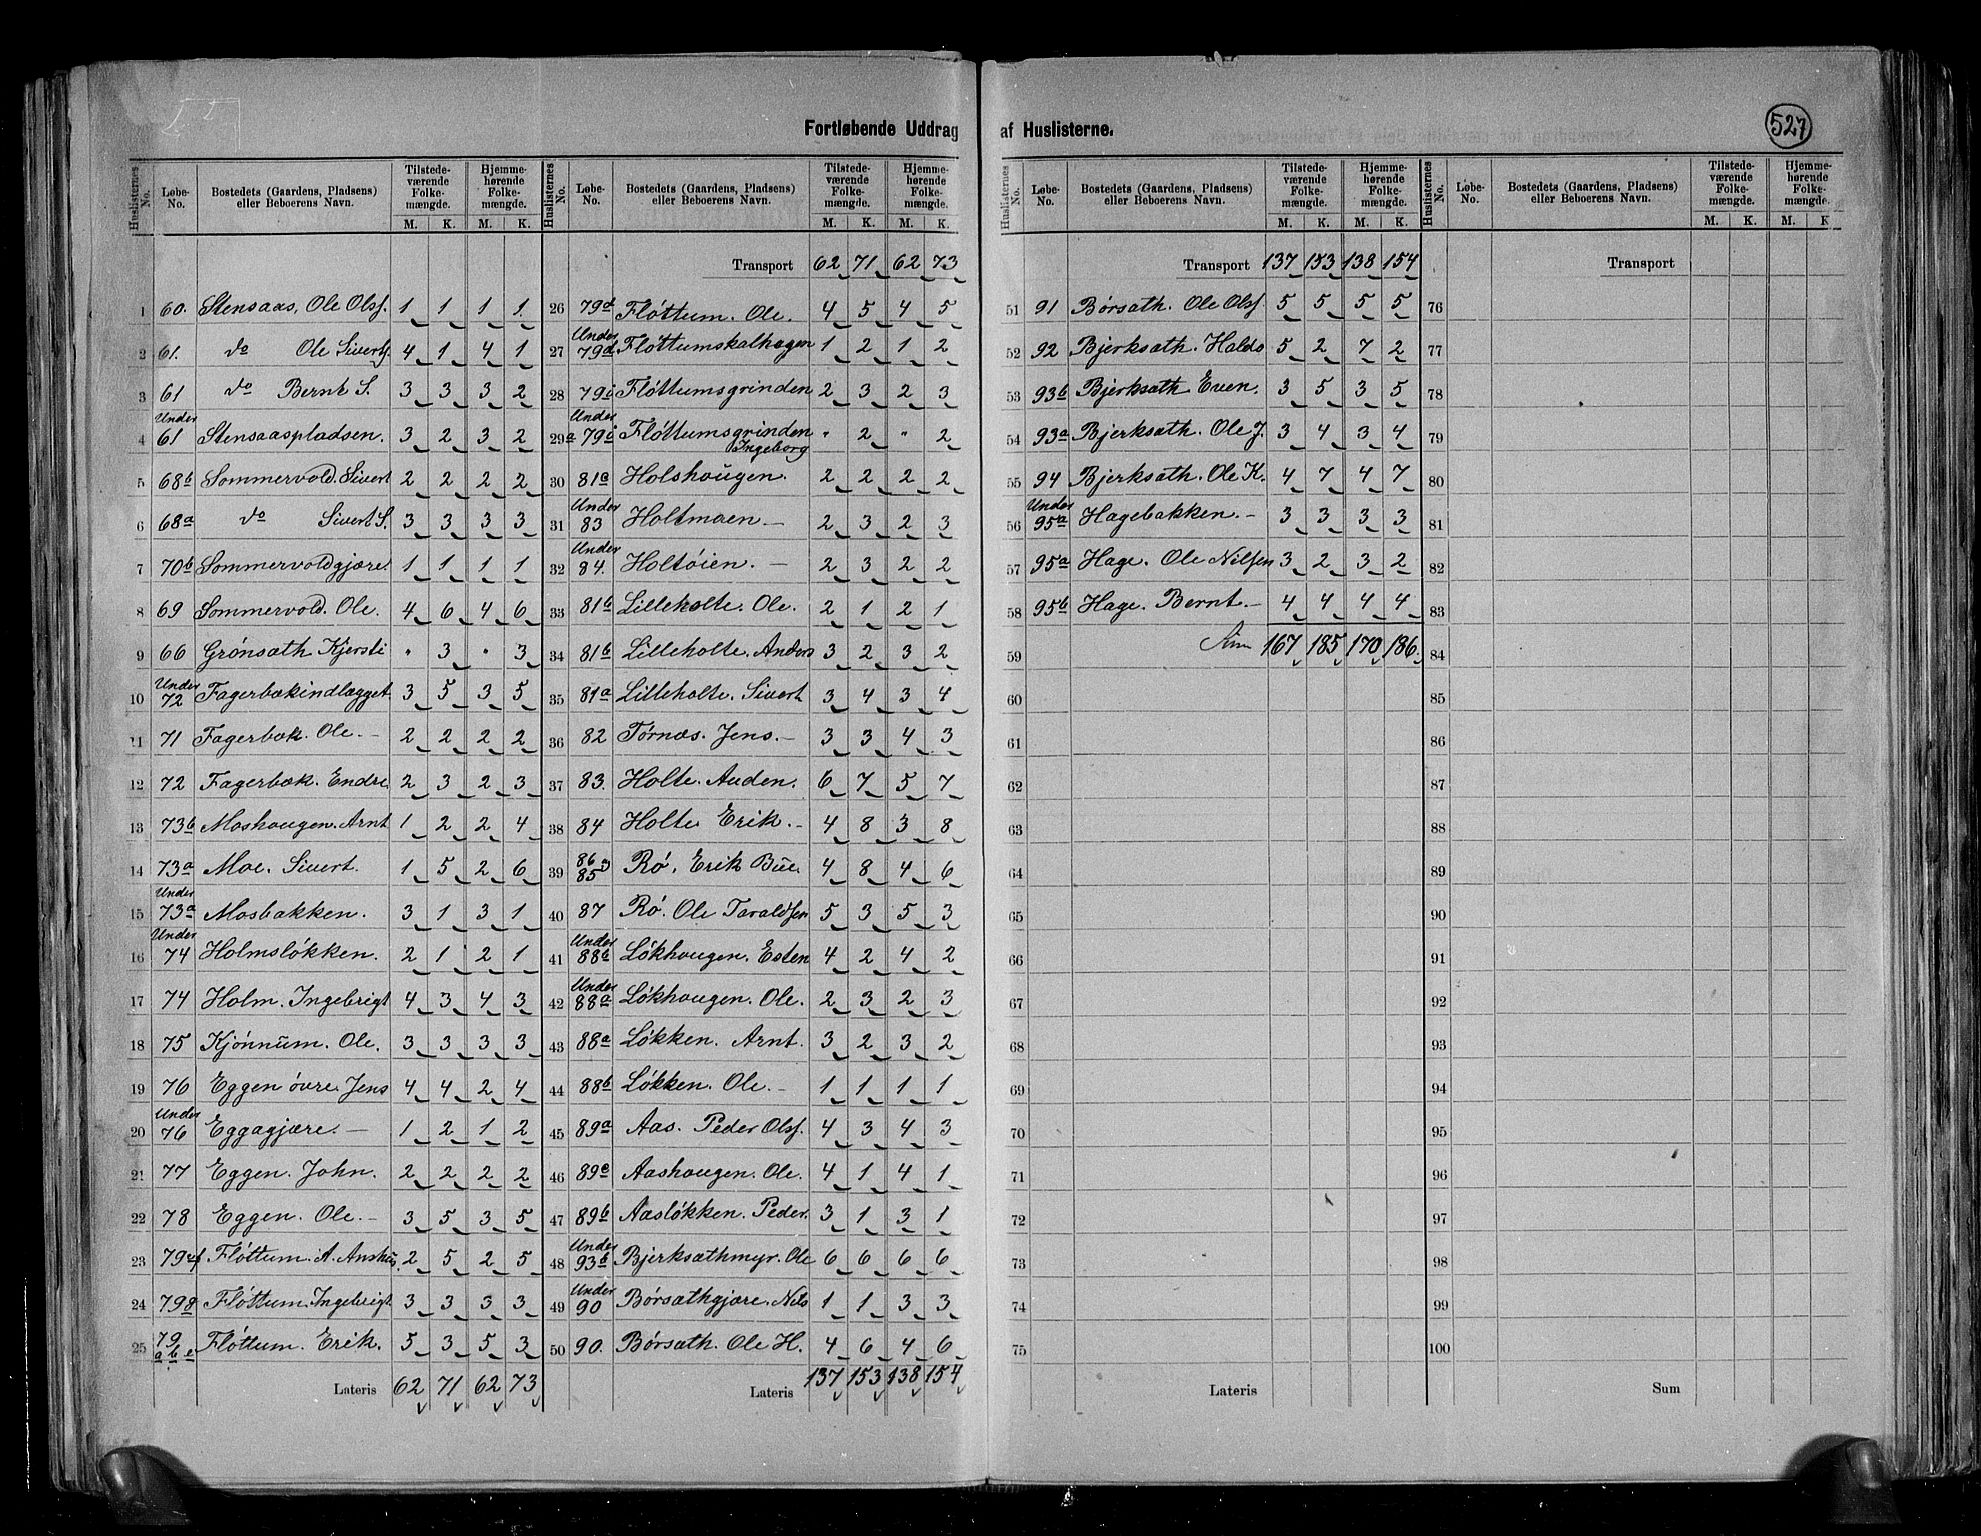 527
Fortløbende Uddrag af Huslisterne.
Huslisternes No. | Løbe-No. | Bostedets (Gaardens, Pladsens) eller Beboerens Navn. | Tilstedeværende Folkemængde. M. K. | Hjemmehørende Folkemængde. M. K.
1 60. Stensaas, Ole Olsf. 1 1 1 1
2 61. do Ole Sivertf. 4 1 4 1
3 61 do Bernt S. 3 3 3 2
4 Under 61 Stensaaspladsen. 3 2 3 2
5 68b Sommervold. Sivert 2 2 2 2
6 68a do Sivert S. 3 3 3 3
7 70b Sommervoldgjære. 1 1 1 1
8 69 Sommervold. Ole. 4 6 4 6
9 66 Grönsath Kjersti " 3 " 3
10 Under 72 Fagerbækindlægget 3 5 3 5
11 71 Fagerbæk. Ole. - 2 2 2 2
12 72 Fagerbæk. Endre 2 3 2 3
13 73b Moshaugen. Arnt 1 2 2 4
14 73a Moe. Sivert. 1 5 2 6
15 Under 73a Mosbakken. 3 1 3 1
16 Under 74 Holmsløkken. 2 1 2 1
17 74 Holm. Ingebrigt 4 3 4 3
18 75 Kjønnum. Ole. 3 3 3 3
19 76 Eggen øvre. Jens 4 4 2 4
20 Under 76 Eggagjære. - 1 2 1 2
21 77 Eggen. John. 2 2 2 2
22 78 Eggen. Ole. - 3 5 3 5
23 79f Fløttum. A. 2 5 2 5
24 79g Fløttum. Ingebrigt 3 3 3 3
25 79 a b e Fløttum. Erik. 5 3 5 3
Lateris 62 71 62 73
Huslisternes No. | Løbe-No. | Bostedets (Gaardens, Pladsens) eller Beboerens Navn. | Tilstedeværende Folkemængde. M. K. | Hjemmehørende Folkemængde. M. K.
Transport 62 71 62 73
26 79d Fløttum. Ole. 4 5 4 5
27 Under 79d Fløttumskalhagen 1 2 1 2
28 79i Fløttumsgrinden 2 3 2 3
29a Under 79i Fløttumsgrinden Ingeborg " 2 " 2
30 81a Holshaugen. 2 2 2 2
31 Under 83 Holtmoen - 2 3 2 3
32 Under 84. Holtøien. - 2 3 2 2
33 81b Lilleholte. Ole. 2 1 2 1
34 81b Lilleholte. Anders 3 2 3 2
35 81a Lilleholte. Sivert 3 4 3 4
36 82 Tørnæs. Jens. - 3 3 4 3
37 83. Holte. Auden. 6 7 5 7
38 84 Holte Erik. - 4 8 3 8
39 86 85 Rø. Erik Bue 4 8 4 6
40 87 Rø. Ole Taraldsen 5 3 5 3
41 Under 88b Løkhaugen. Esten 4 2 4 2
42 Under 88a Løkhaugen. Ole. 2 3 2 3
43 88a Løkken. Arnt. 3 2 3 2
44 88b Løkken. Ole. - 1 1 1 1
45 89a Aas. Peder Olsf. 4 3 4 3
46 89c Aashaugen. Ole. 4 1 4 1
47 89b Aasløkken. Peder. 3 1 3 1
48 Under 93b Bjerksæthmyr. Ole 6 6 6 6
49 Under 90 Børsæthgjære. Nils 1 1 3 3
50 90. Børsæth. Ole H. 4 6 4 6
Lateris 137 153 138 154
Huslisternes No. | Løbe-No. | Bostedets (Gaardens, Pladsens) eller Beboerens Navn. | Tilstedeværende Folkemængde. M. K. | Hjemmehørende Folkemængde. M. K.
Transport 137 153 138 154
51 91 Børsæth. Ole Olsf. 5 5 5 5
52 92 Bjerksæth. Haldo 5 2 7 2
53 93b Bjerksæth Even. 3 5 3 5
54 93a Bjerksæth. Ole J. 3 4 3 4
55 94 Bjerksæth. Ole K. 4 7 4 7
56 Under 95a Hagebakken. - 3 3 3 3
57 95a Hage. Ole Nilsen 3 2 3 2
58 95b Hage. Bernt. - 4 4 4 4
59 Sum 167 185 170 186
60
61
62
63
64
65
66
67
68
69
70
71
72
73
74
75
Lateris
Huslisternes No. | Løbe-No. | Bostedets (Gaardens, Pladsens) eller Beboerens Navn. | Tilstedeværende Folkemængde. M. K. | Hjemmehørende Folkemængde. M. K
Transport
76
77
78
79
80
81
82
83
84
85
86
87
88
89
90
91
92
93
94
95
96
97
98
99
100
Sum